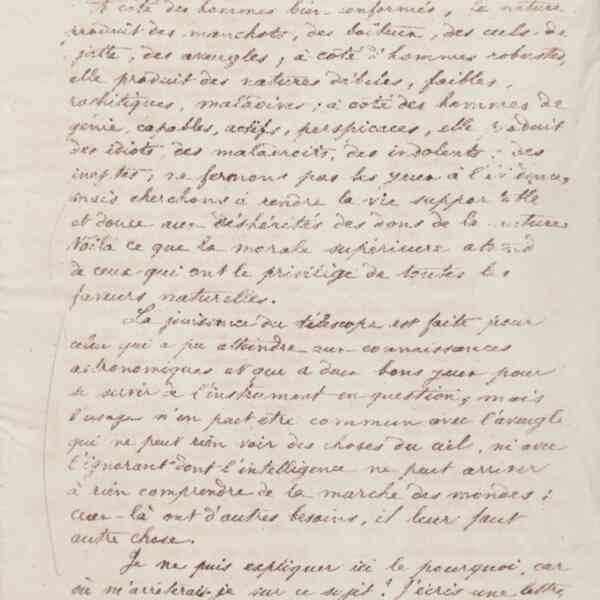 A côté des hommes bien conformés, la nature
produit des manchots, des boiteux, des culs-de-
jatte, des aveugles, à côté d'hommes robustes,
elle produit des natures débiles, faibles,
rachitiques, maladives; à coté des hommes de
génie, capables, actifs, perspicaces, elle produit
des idiots, des maladroits, des indolents, des
ineptes; ne fermons pas les yeux à l'évidence,
mais cherchons à rendre la vie supportable
et douce aux déshérités des dons de la nature.
Voilà ce que la morale supérieure attend
de ceux qui ont le privilège de toutes les
faveurs naturelles.
La jouissance du télescope est faite pour
celui qui a pu atteindre aux connaissances
astronomiques et qui a deux bons yeux pour
se servir de l'instrument en question, mais
l'usage n'en peut être commun avec l'aveugle
qui ne peut rien voir des choses du ciel, ni avec
l'ignorant dont l'intelligence ne peut arriver
à rien comprendre de la marche des mondes;
ceux-là ont d'autres besoins, il leur faut
autre chose.
Je ne puis expliquer ici le pourquoi, car
où m'arrêterais-je sur ce sujet? J'écris une lettre,